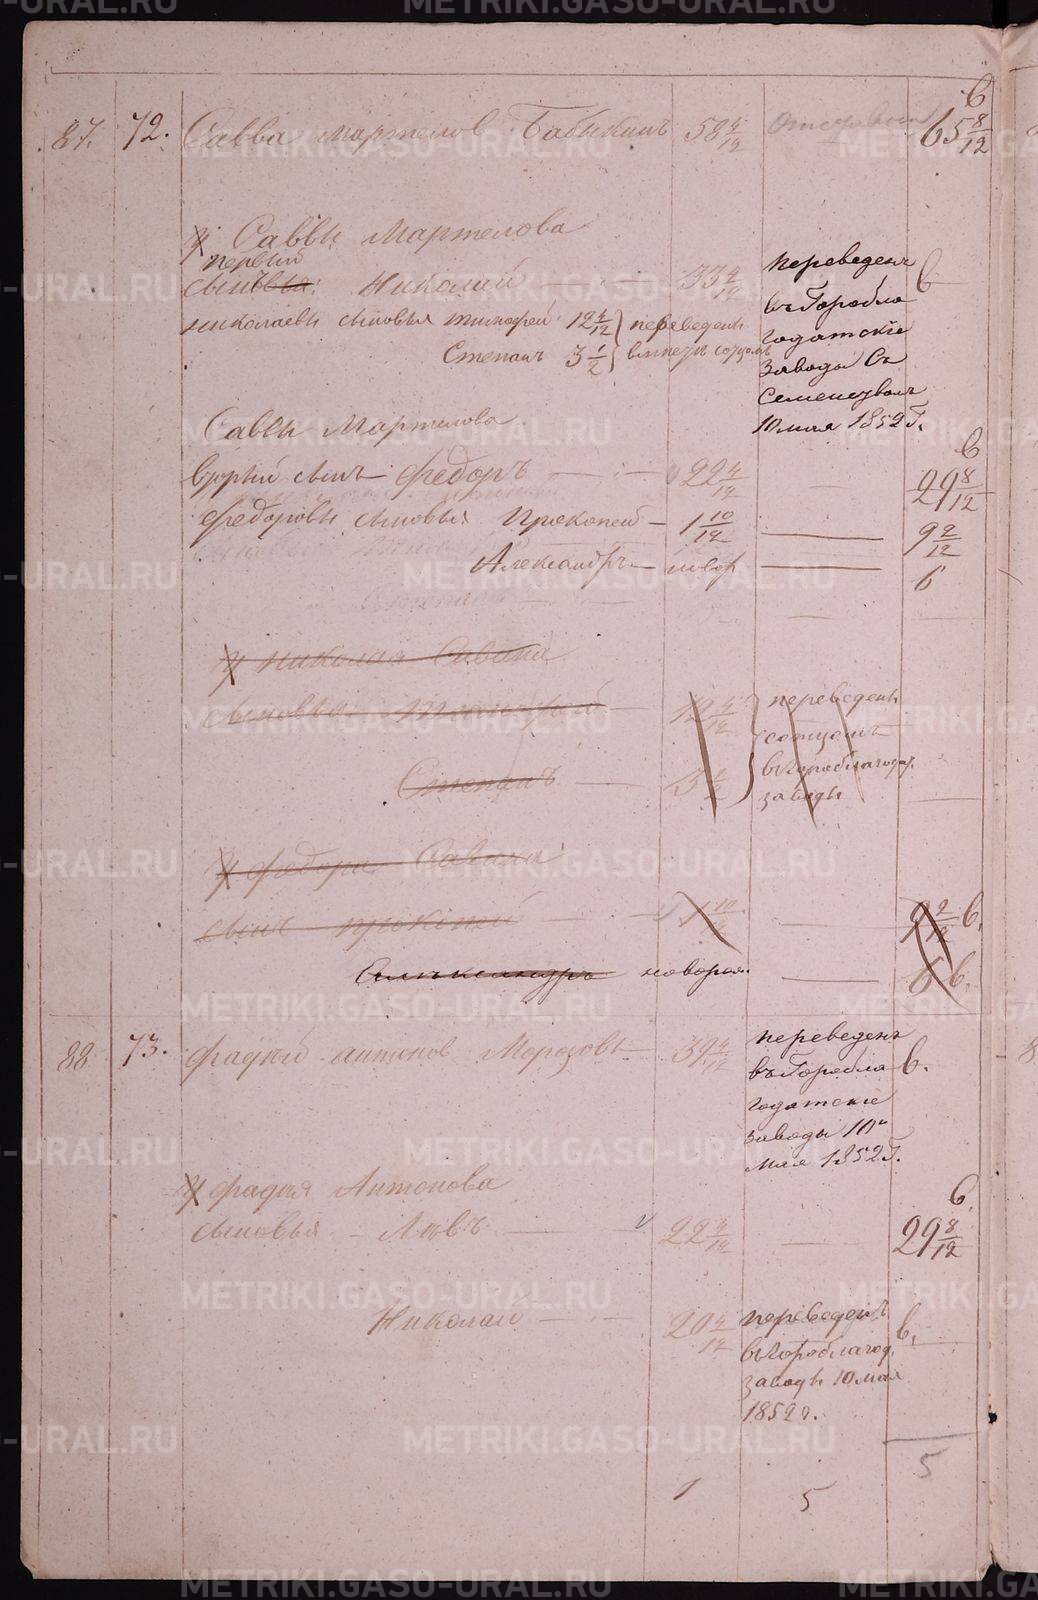 87. 72. Савва Мартелов Бабкинъ 58 4/12 65 8/12 в
У Саввы Мартелова
первый
сынъ Николай 33 4/12 переведенъ в
въ Горобла
годатскіе
заводы Съ
10 мая 1852 Г.
Николаевы сыновья Тимофей 12 4/12 переведены
Степанъ 3 1/2
Саввы Мартелова
вторый сынъ Федоръ 22 4/12 29 8/12 в
Федоровы сыновья Прокопей 1 10/12 9 2/12
Александръ новор 6
У Николая Савина
сыновья Тимофей 12 4/12 переведены
сотцомъ
Степанъ 3 1/2 в Гороблагодат.
заводы
У Федора Савина
сынъ Прокопей 1 10/12 9 2/12 в.
Алѣксандръ новорож. 6 в.
88 73. Фадѣй Антонов Морозовъ 39 4/12 переведенъ
въ Горобла в.
годатскіе
заводы 10го
мая 1852 Г.
У Фадѣя Антонова
сыновья Львъ 22 4/12 29 8/12 в
Николай 20 4/12 переведенъ в.
въ Гороблагод.
заводы 10 мая
1852 г.
5
1 5
METRIKI.GASO-URAL.RU